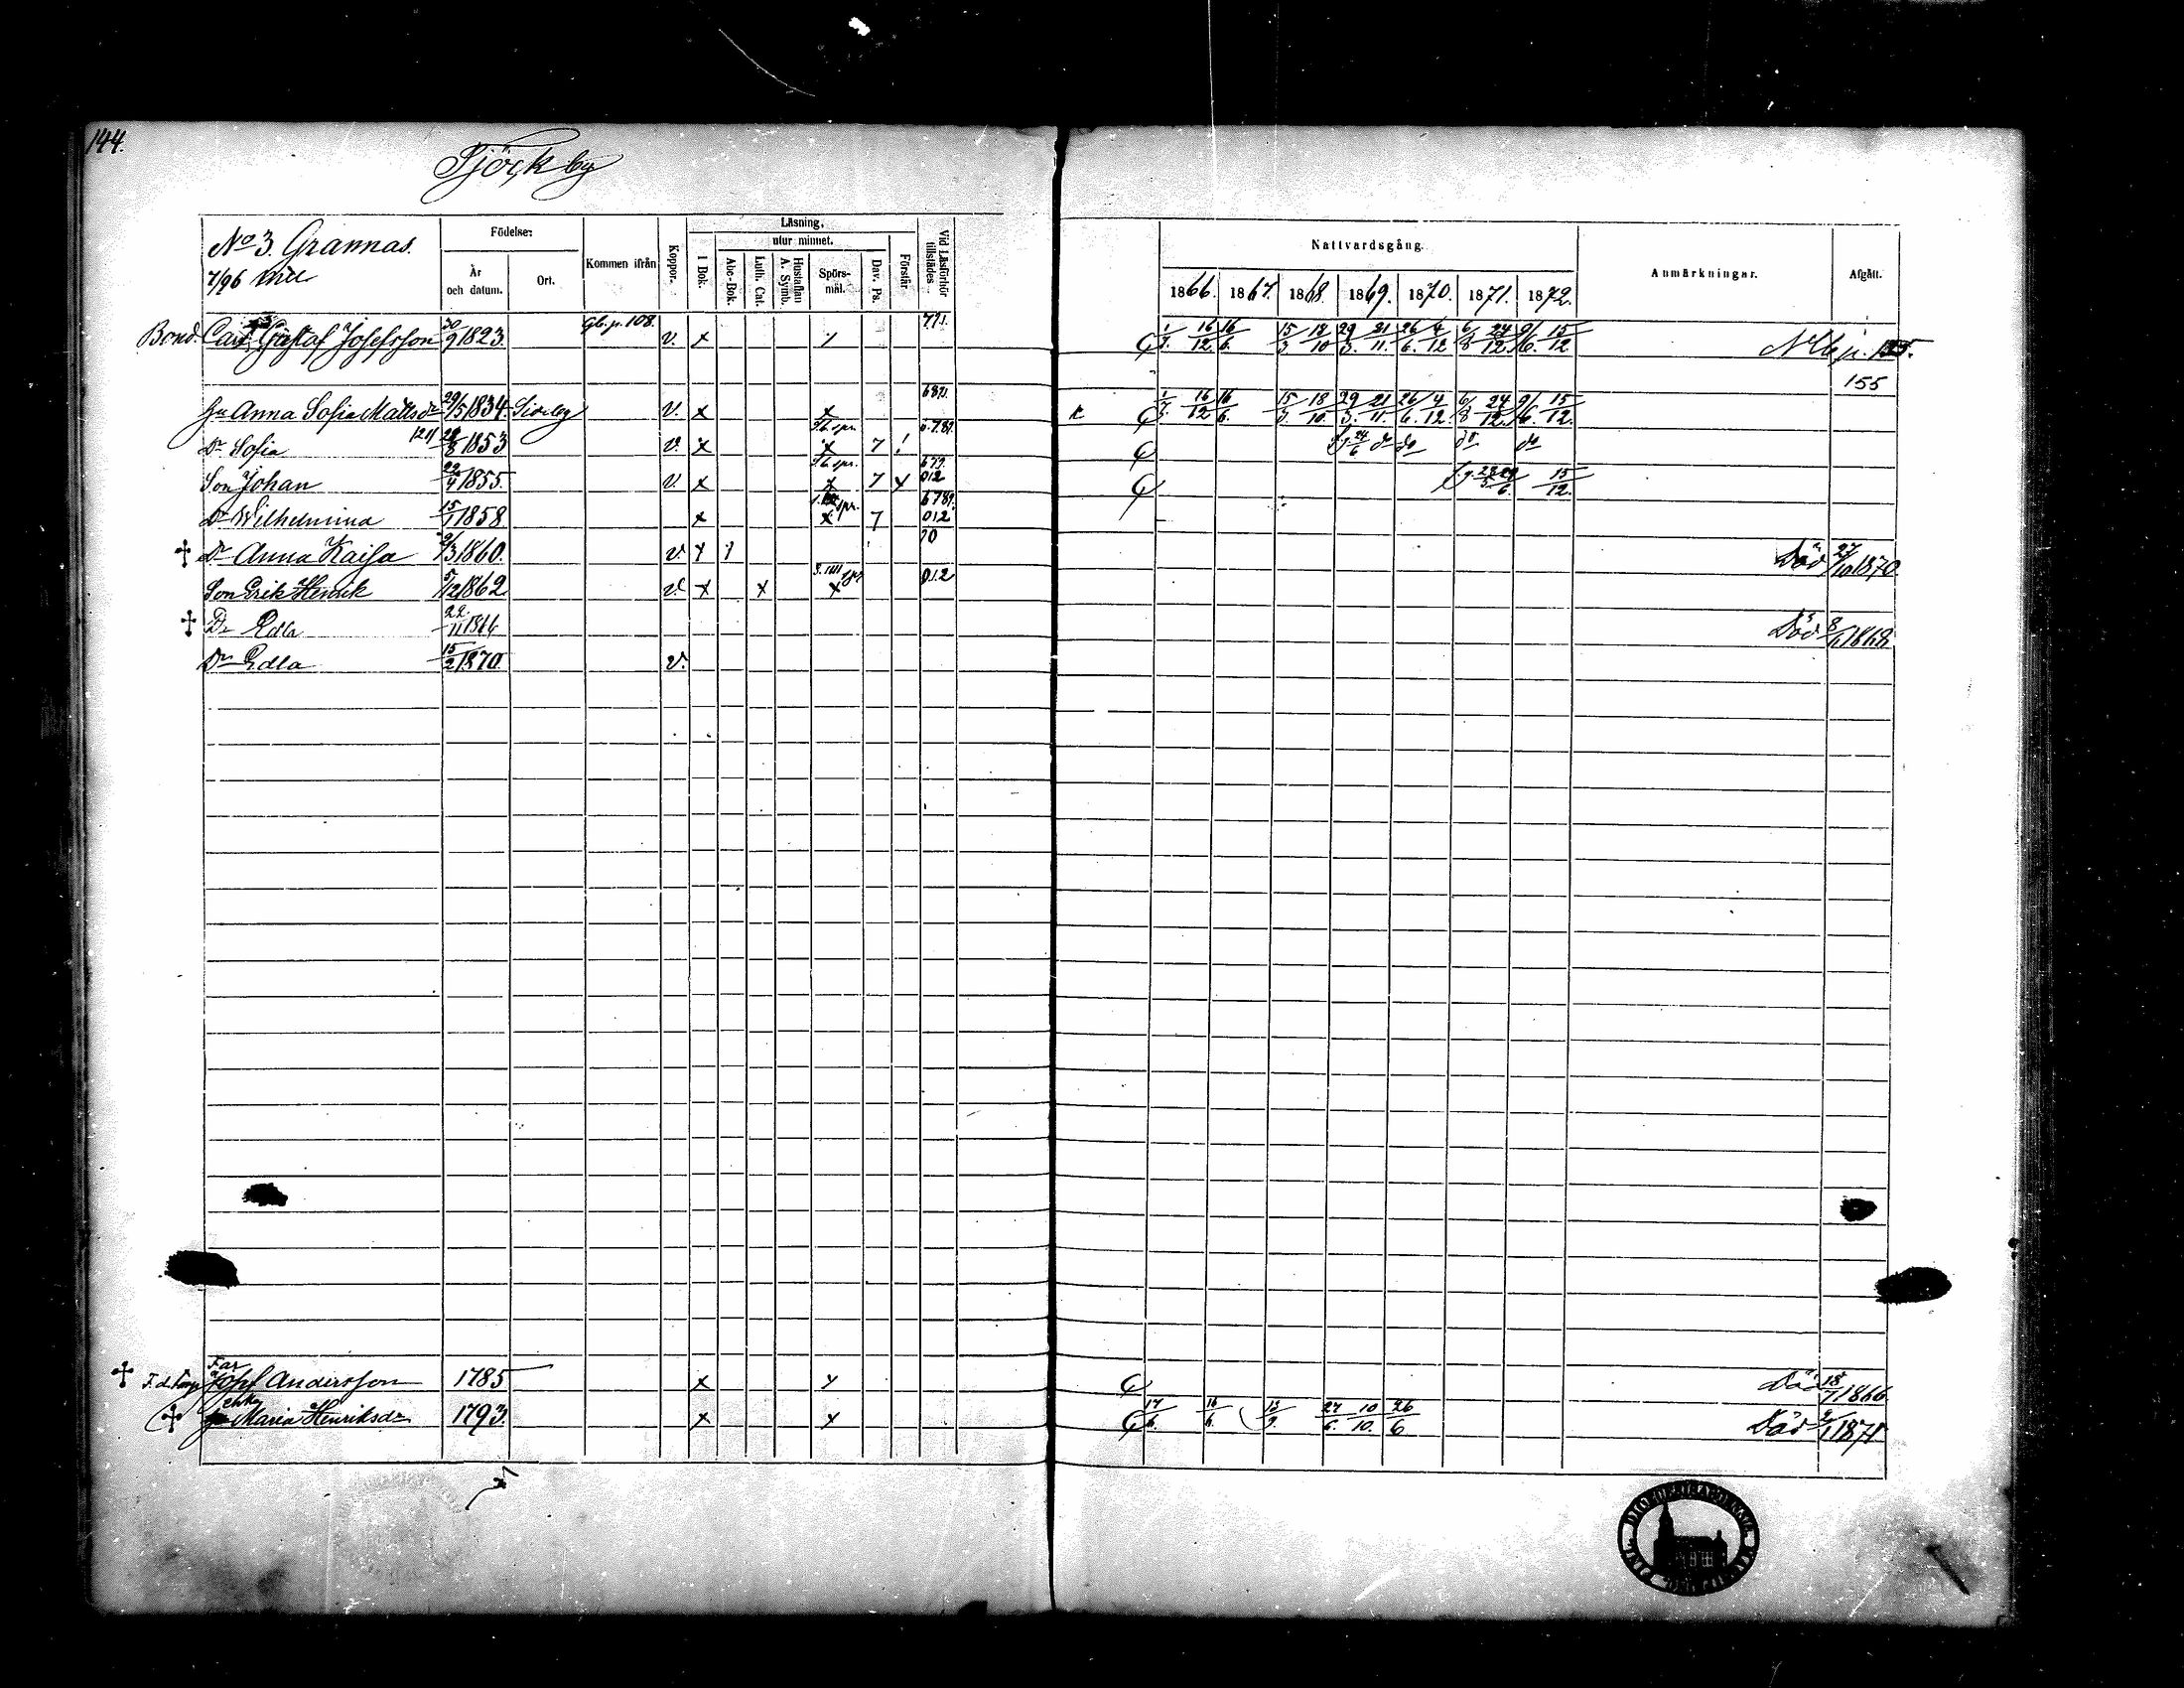 144.
Tjöck by
No 3. Grannas.
7/96 mtl
Födelse:
År och datum.
Ort.
Kommen ifrån
Koppor.
Läsning,
utur minnet.
I Bok.
Abc-Bok.
Luth. Cat.
Hustaflan A. Symb.
Spörs-mål.
Dav. Ps.
Förstår
Vid Läsförhör tillstädes
Nattvardsgång.
1866. 1867. 1868 1869. 1870. 1871. 1872.
Anmärkningar.
Afgått.
Bond. Carl Gustaf Josefsson 30/9 1823. Gb. p. 108. v. x 1/7. 16/12. 16/6. 15/3 18/10 29/3. 21/11. 26/6. 4/12 6/8 24/12. 9/6. 15/12
155
hu Anna Sofia Mattsdr 29/5 1834 Sideby v. x x 16/12 16/6. 15/3. 18/10. 29/3. 21/11. 26/6. 4/12. 6/8 24/12. 9/6. 15/12.
Dr Sofia 1853 v. x x 7 24/6 do do do do
Son Johan 22/4 1855. v. x x 7 x 012 15/12.
Dr Wilhelmina 15/1 1858 x x 7 6789. 012
Dr Anna Kajsa 1860. v. 70 Död 27/10 1870.
Son Erik Henrik 5/12 1862 v. x x x 012
Dr Edla 22/11 1866 Död 1868.
Dr Edla 15/2 1870. v.
Far
Josef Andersson 1785 x x Död 18/7 1866
enka
Maria Henriksdr 1793. x x 17/6. 16/6. 15/3. 27/6. 10/10. 26/6 Död 1871